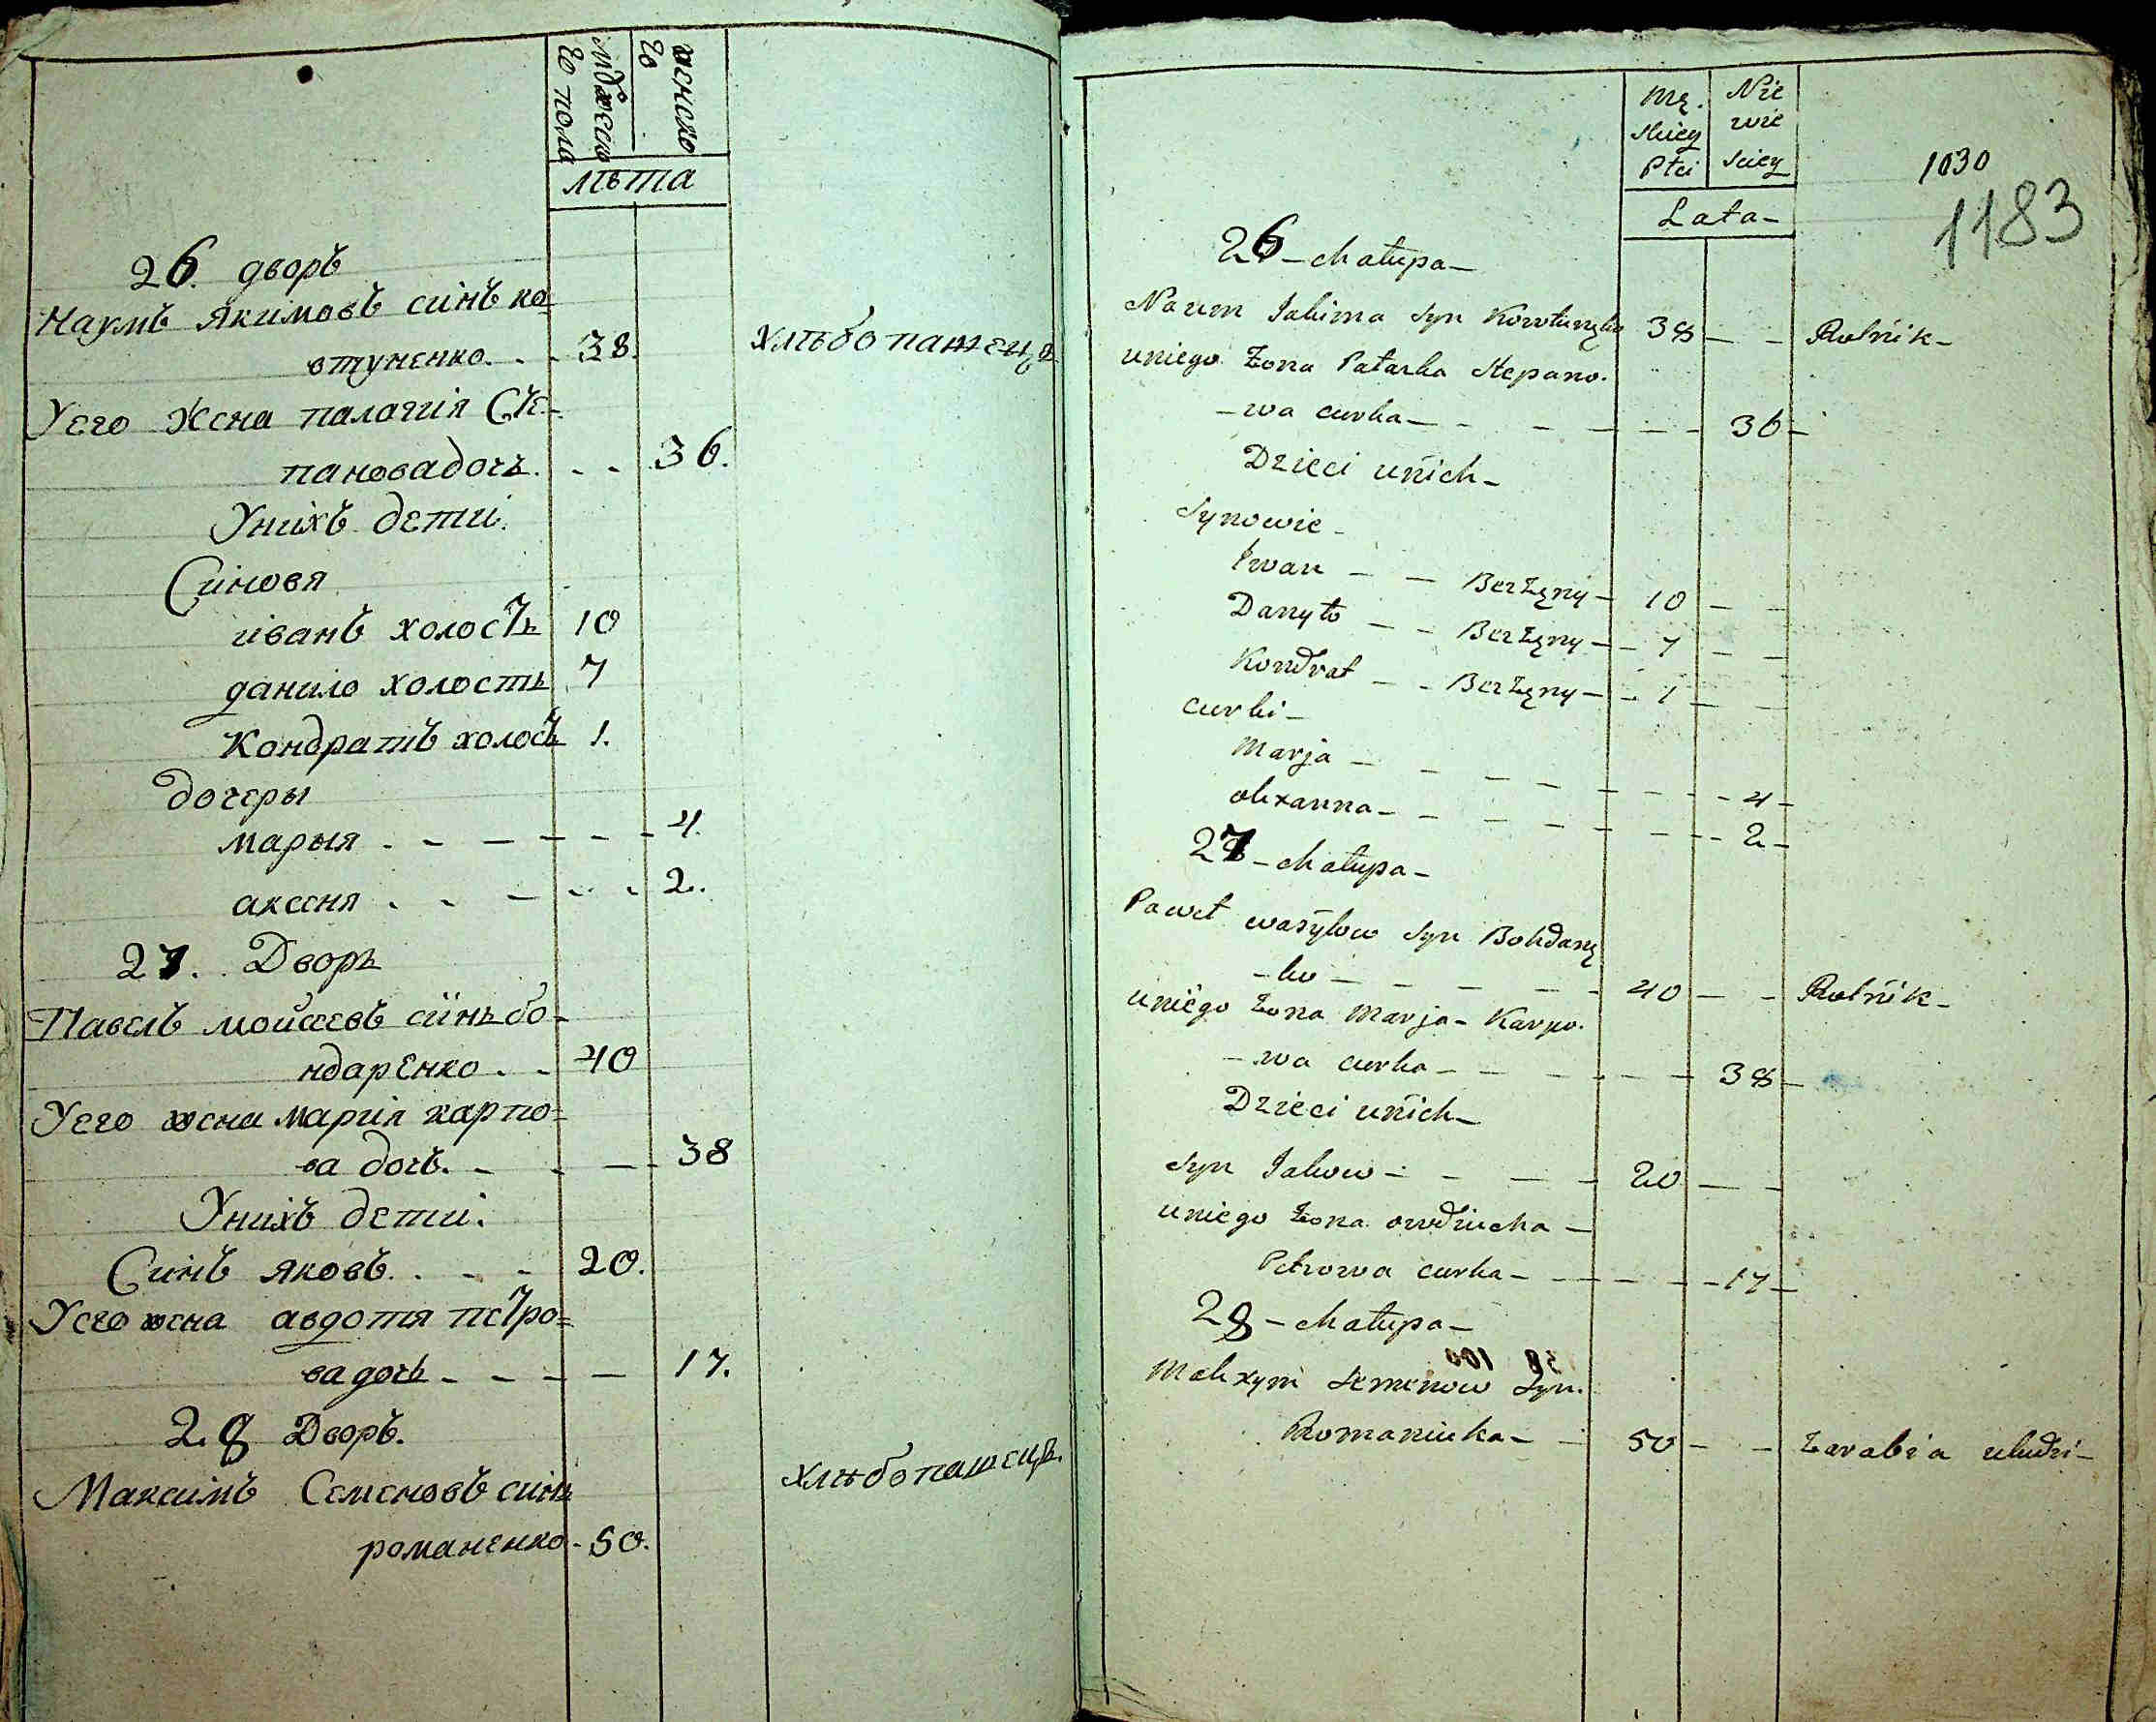 мужеско
го пола
женско
го
лѣта
26. дворъ
Наумъ якимовъ синъ ко=
втуненко. . . 38. хлѣбопашецъ
Уего жена палагия Сте-
пановадочь. . . 36.
Унихъ дети.
Синовя
иванъ холостъ 10
данило холость 7
Кондратъ холостъ 1.
дочеры
марыя . - - - - - 4.
аксеня . . - - . . 2.
27. Дворъ
Павелъ мойсеевъ синь бо-
ндаренко. . - 40
Уего жена мария карпо=
ва дочь. - - - - 38
Унихъ дети.
Синъ яковъ. . - - 20.
Уего жена авдотя петро=
ва дочь - - - - 17.
28 Дворъ.
Максимъ Семеновъ синь хлѣбопашецъ.
романенко - 50.
Mę.
skiey
Płci
Nie
wie
sciey
Lata-
1030
1183
26 - Chałupa -
Naum Jakima syn Kowtunęko 38 - - Rolnik -
uniego Żona Pałaska Stepano.
- wa curka - - - - - - 36 -
Dzieci unich -
Synowie -
Iwan - - Bezżęny - 10 - -
Danyło - - Bezżęny - - 7 - -
Kondrat - - Bezżęny - - 1 - -
curki -
Marja - - - - - - - - 4 -
okxanna - - - - - - - - 2 -
27 - Chałupa -
Paweł wasylow syn Bohdanę
- ko - - - - - - 40 - - Rolnik -
uniego Żona Marja - Karpo.
- wa curka - - - - - - 38 -
Dzieci unich -
syn Jakow - - - - 20 - -
uniego Żona owdiucha -
Petrowa curka - - - - - - 17 -
28 - Chałupa -
Makxym Semenow Syn.
Romaniuka - - 50 - - Zarabia uludzi -